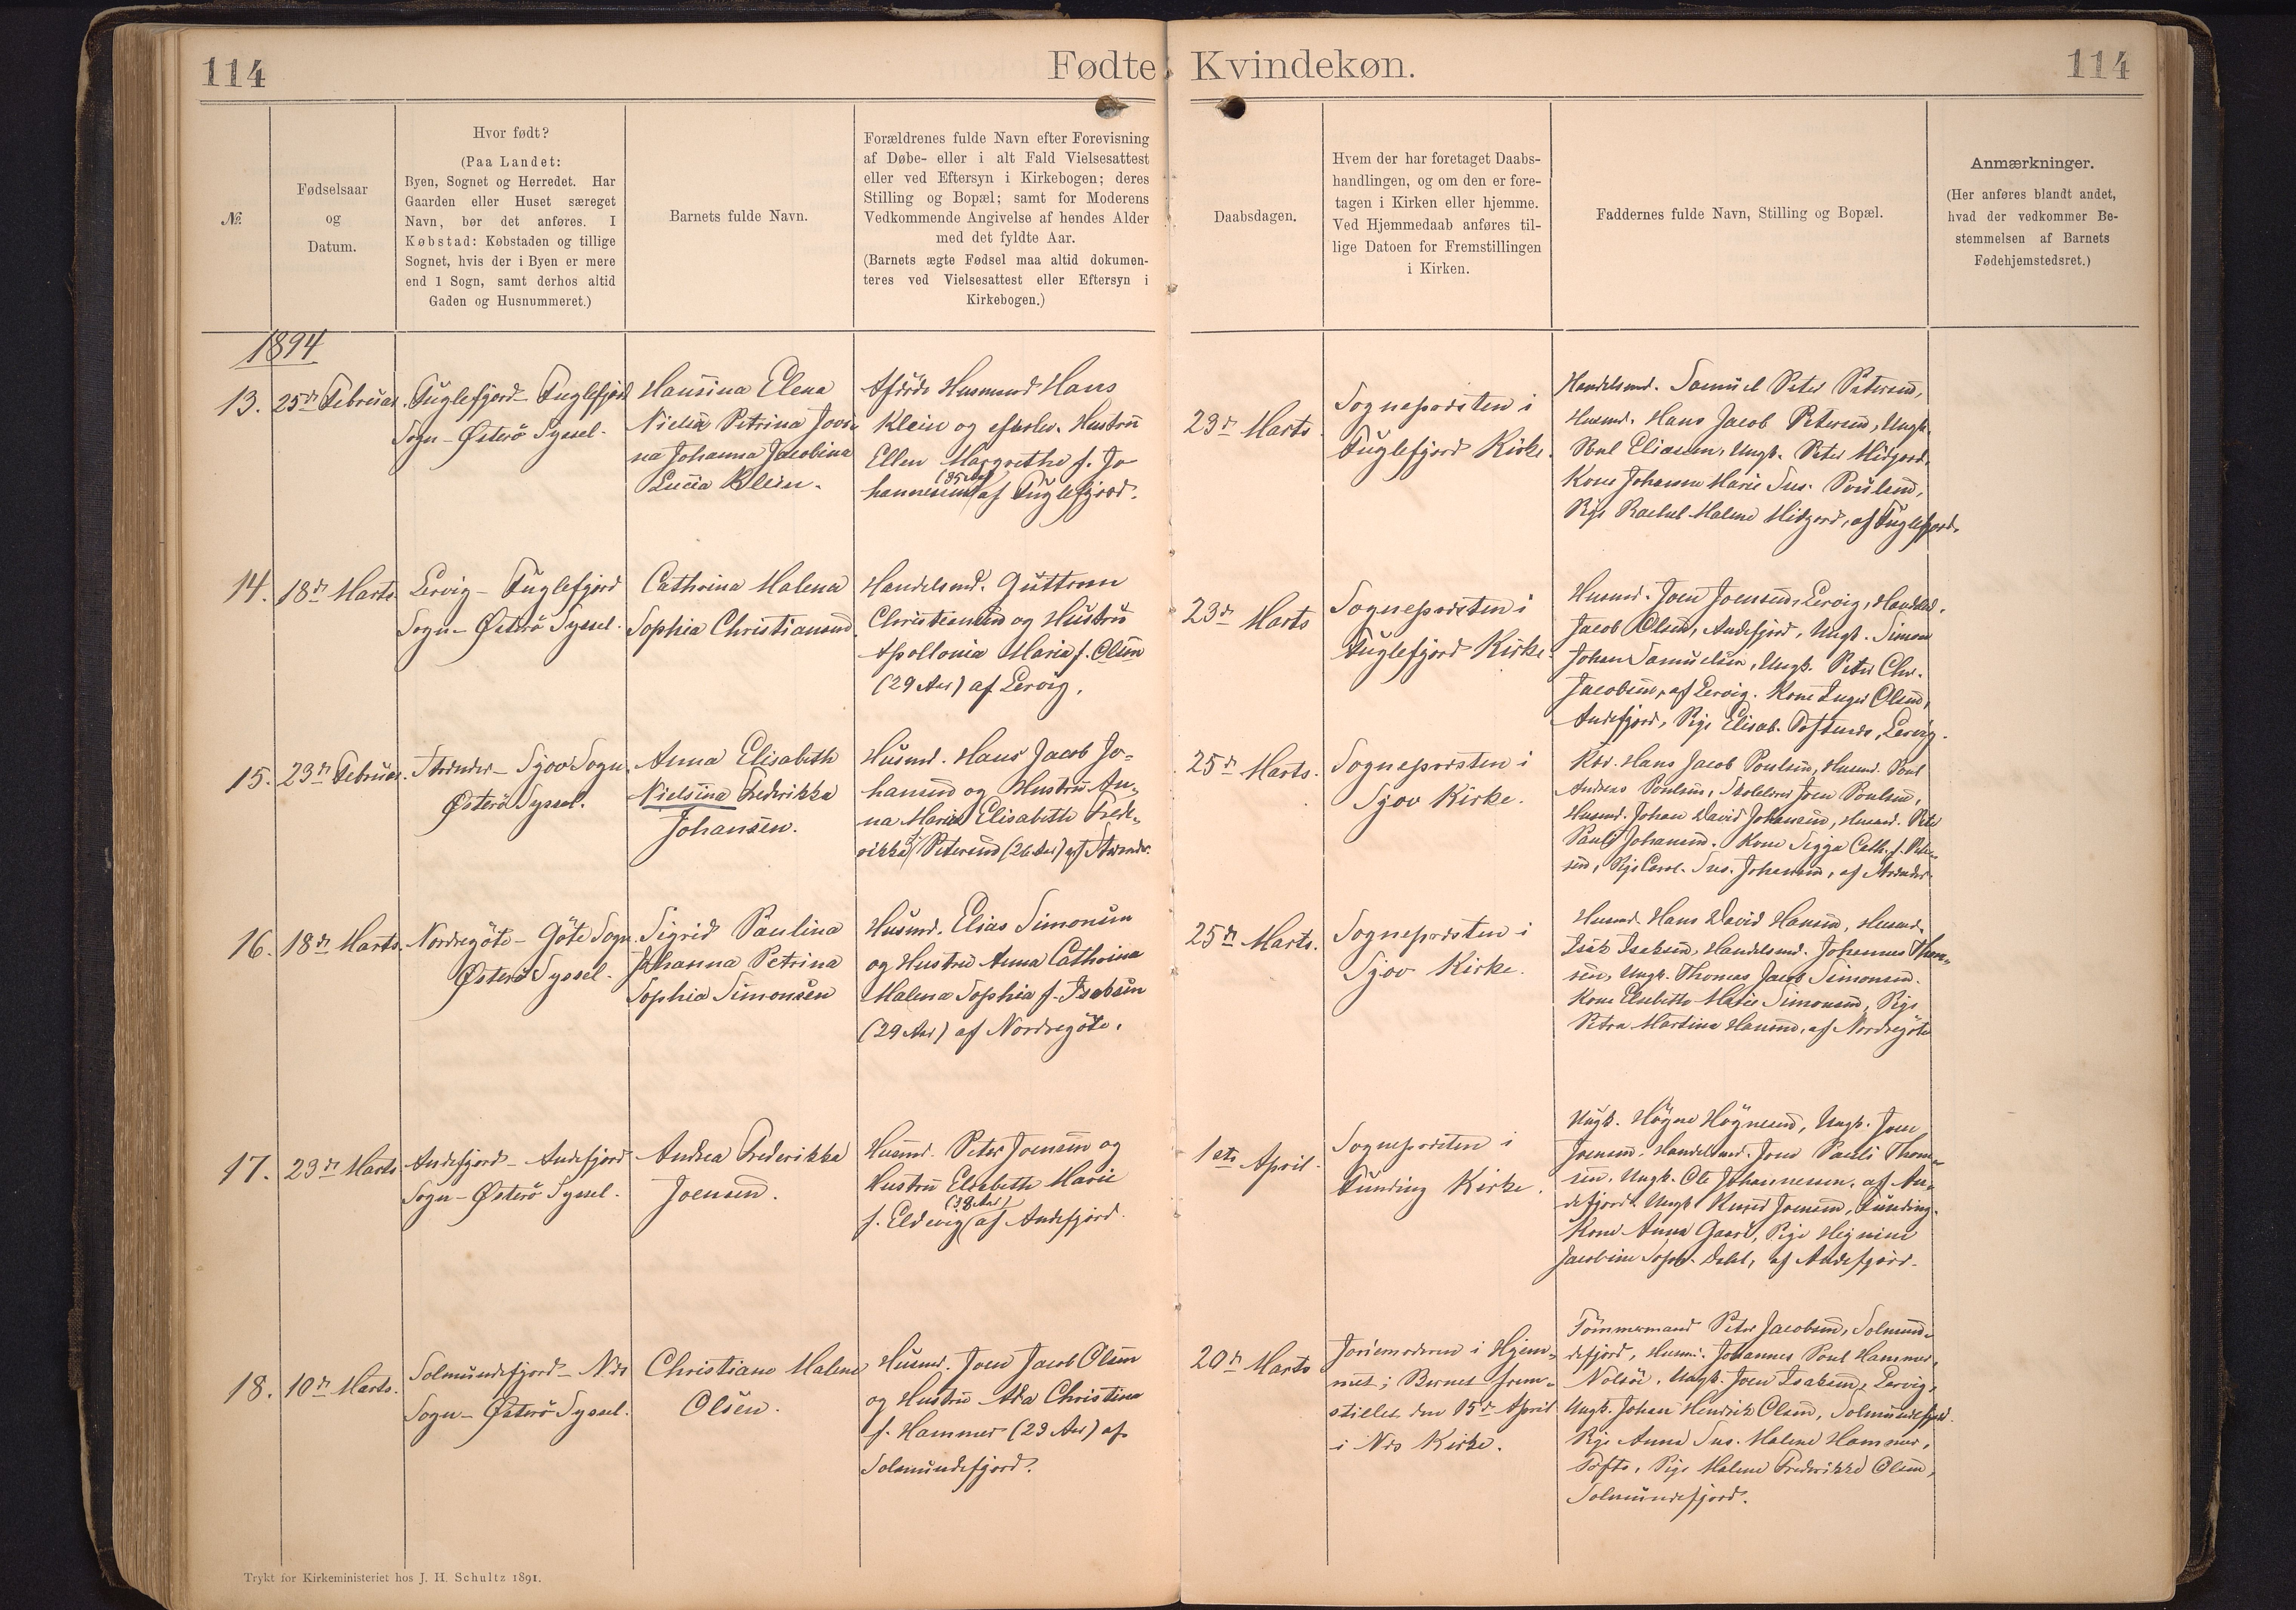 114
Fødte Kvindekøn.
114
№.
Fødselsaar
og
Datum.
Hvor født?
(Paa Landet:
Byen, Sognet og Herredet. Har
Gaarden eller Huset særeget
Navn, bør det anføres. I
Købstad: Købstaden og tillige
Sognet, hvis der i Byen er mere
end 1 Sogn, samt derhos altid
Gaden og Husnummeret.)
Barnets fulde Navn.
Forældrenes fulde Navn efter Forevisning
af Døbe- eller i alt Fald Vielsesattest
eller ved Eftersyn i Kirkebogen; deres
Stilling og Bopæl; samt for Moderens
Vedkommende Angivelse af hendes Alder
med det fyldte Aar.
(Barnets ægte Fødsel maa altid dokumen-
teres ved Vielsesattest eller Eftersyn i
Kirkebogen.)
Daabsdagen.
Hvem der har foretaget Daabs-
handlingen, og om den er fore-
tagen i Kirken eller hjemme.
Ved Hjemmedaab anføres til-
lige Datoen for Fremstillingen
i Kirken.
Faddernes fulde Navn, Stilling og Bopæl.
Anmærkninger.
(Her anføres blandt andet,
hvad der vedkommer Be-
stemmelsen af Barnets
Fødehjemstedsret.)
1894
13.
25de Februar.
Fuglefjord - Fuglefjord
Sogn - Österö Syssel.
Hansina Elena
Nielsa Petrina Joen-
na Johanna Jacobina
Lucia Klein.
Afdöde Husmand Hans
Klein og efterlev. Hustru
Ellen Margrethe f. Jo
hannesen (35 Aar) af Fuglefjord.
23de Marts
Sognepræsten i
Fuglefjord Kirke.
Handelsmd. Samuel Peter Petersen,
Husmd. Hans Jacob Petersen, Ungk.
Poul Eliasen, Ungk. Peter Midjord,
Kone Johanna Marie Sus. Poulsen,
Pige Rachel Malene Midjord, af Fuglefjord.
14.
18de Marts.
Lervig - Fuglefjord
Sogn - Österö Syssel.
Cathrina Malena
Sophia Christiansen
Handelsmd. Guttorm
Christiansen og Hustru
Apollonia Maria f. Olsen
(29 Aar) af Lervig.
23de Marts
Sognepræsten i
Fuglefjord Kirke.
Husmd. Joen Joensen, Lervig, Handelsd.
Jacob Olsen, Andefjord, Ungk. Simon
Johan Samuelsen, Ungk. Peter Chr.
Jacobsen, af Lervig. Kone Inger Olsen,
Andefjord, Pige Elisab. Poftende, Lervig.
15.
23de Februar.
Strænder - Sjov Sogn
Österö Syssel.
Anna Elisabeth
Nielsina Frederikka
Johansen.
Husmd. Hans Jacob Jo-
hansen og Hustru An-
na Maria Elisabeth Frede-
rikka f. Petersen (26 Aar) af Strænder.
25de Marts.
Sognepræsten i
Sjov Kirke.
Kbr. Hans Jacob Poulsen, Husmd. Poul
Andreas Poulsen, Skolelærer Joen Poulsen,
Husmd. Johan David Johansen, Husmd. Peter
Pauli Johansen. Kone Sigga Cath. f. Peter-
sen, Pige Carol. Sus. Johansen, af Strænder.
16.
18de Marts.
Nordregöte - Göte Sogn
Österö Syssel.
Sigrid Paulina
Johanna Petrina
Sophia Simonsen
Husmd. Elias Simonsen
og Hustru Anna Cathrina
Malena Sophia f. Isaksen
(29 Aar) af Nordregöte.
25de Marts.
Sognepræsten i
Sjov Kirke.
Husmd. Hans David Hansen, Husmd.
Isak Isaksen, Handelsmd. Johannes Thom-
sen, Ungk. Thomas Jacob Simonsen.
Kone Elsebeth Marie Simonsen, Pige
Petra Martina Hansen, af Nordregöte
17.
23de Marts
Andefjord - Andefjord
Sogn - Österö Syssel.
Andrea Frederikka
Joensen.
Husmd. Peter Joensen og
Hustru Elsebeth Marie
f. Eldevig (38 Aar) af Andefjord.
1ste April.
Sognepræsten i
Funding Kirke.
Ungk. Högne Högnesen, Ungk. Joen
Joensen, Handelsmd. Joen Pauli Thom-
sen, Ungk. Ole Johannessen, af An-
defjord. Ungk. Knud Joensen, Funding.
Kone Anna Gaard, Pige Heginine
Jacobine Soph. Dahl, af Andefjord.
18.
10de Marts.
Solmundefjord - Næs
Sogn - Österö Syssel.
Christiane Malene
Olsen.
Husmd. Joen Jacob Olsen
og Hustru Ada Christina
f. Hammer (23 Aar) af
Solmundefjord.
20de Marts
Jordemoderen i Hjem-
met; Barnet frem-
stillet den 15de April
i Næs Kirke.
Tömmermand Peter Jacobsen, Solmund-
defjord, Husmd. Johannes Poul Hammer,
Nolsöe, Ungk. Joen Isaksen, Lervig,
Ungk. Johan Hendrik Olsen, Solmundefjord.
Pige Anna Sus. Malene Hammer,
Tofte, Pige Malene Frederikke Olsen,
Solmundefjord.
Trykt for Kirkeministeriet hos J. H. Schultz 1891.